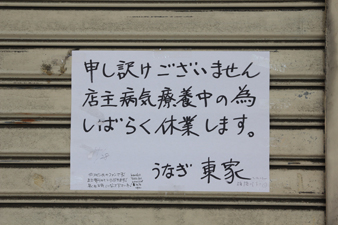 申し訳けございません
店主病気療養中の為
しばらく休業します。
うなぎ 東家